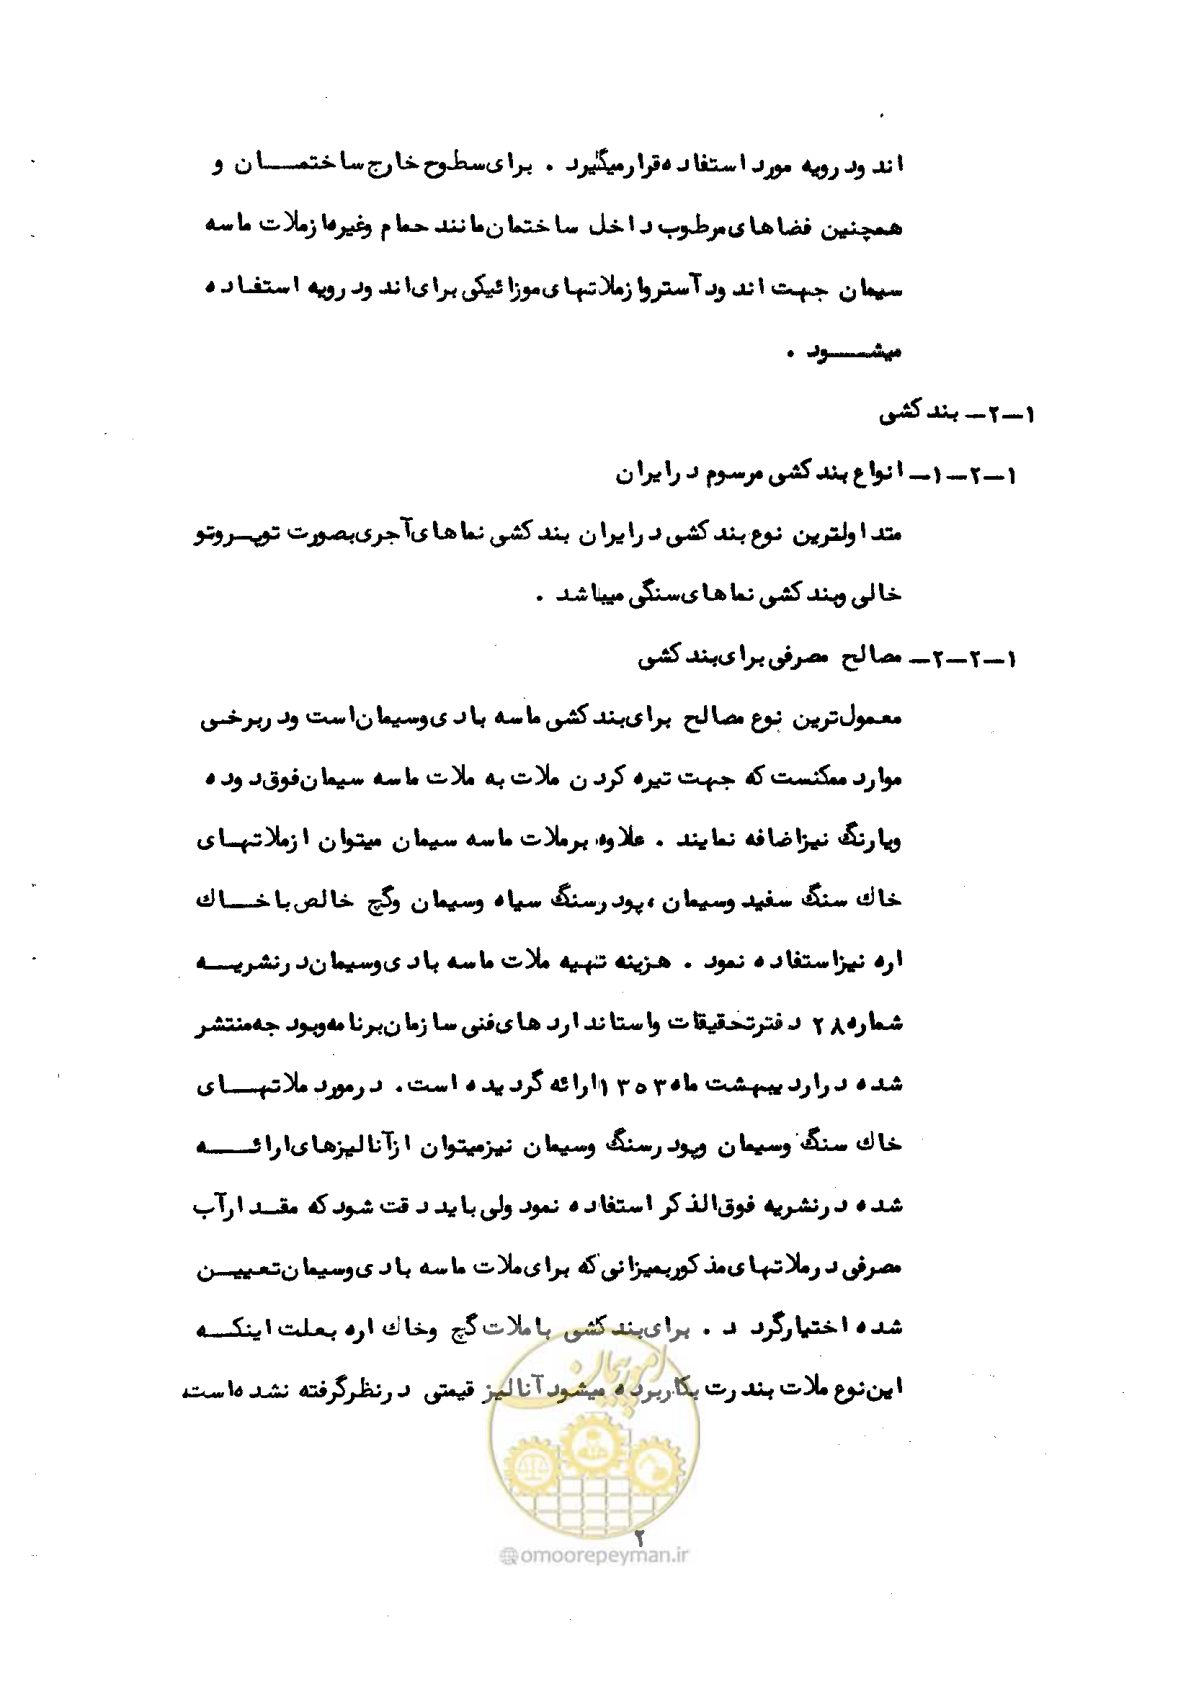 اندود رویه مورد استفاده قرارمیگیرد . برای سطوح خارج ساختمـــان و
همچنین فضاهای مرطوب داخل ساختمان مانند حمام وغیره از ملات ماسه
سیمان جهت اندود آستر واز ملاتهای موزائیکی برای اندود رویه استفاده
میشـــود .
۱-۲- بند کشی
۱-۲-۱- انواع بند کشی مرسوم درایران
متداولترین نوع بند کشی درایران بند کشی نماهای آجری بصورت توپروتو
خالی وبند کشی نماهای سنگی میباشد .
۱-۲-۲- مصالح مصرفی برای بند کشی
معمول‌ترین نوع مصالح برای بند کشی ماسه بادی وسیمان است ودربرخی
موارد ممکنست که جهت تیره کردن ملات به ملات ماسه سیمان فوق دوده
ویارنگ نیزاضافه نمایند . علاوه برملات ماسه سیمان میتوان ازملاتهـای
خاك سنگ سفید وسیمان ، پودرسنگ سیاه وسیمان وگچ خالص باخـــاك
اره نیزاستفاده نمود . هزینه تهیه ملات ماسه بادی وسیمان درنشریــه
شماره ۲۸ دفترتحقیقات واستانداردهای فنی سازمان برنامه وبودجه منتشر
شده دراردیبهشت ماه ۱۳۵۳ ارائه گردیده است . درمورد ملاتهـــای
خاك سنگ وسیمان وپودرسنگ وسیمان نیزمیتوان ازآنالیزهای ارائـــه
شده درنشریه فوق‌الذکر استفاده نمود ولی باید دقت شود که مقدارآب
مصرفی درملاتهای مذکوربمیزانی که برای ملات ماسه بادی وسیمان تعییـن
شده اختیارگردد . برای بند کشی باملات گچ وخاك اره بعلت اینکــه
این نوع ملات بندرت بکاربرده میشود آنالیز قیمتی درنظرگرفته نشده است
امور پیمان
۲
@omoorepeyman.ir